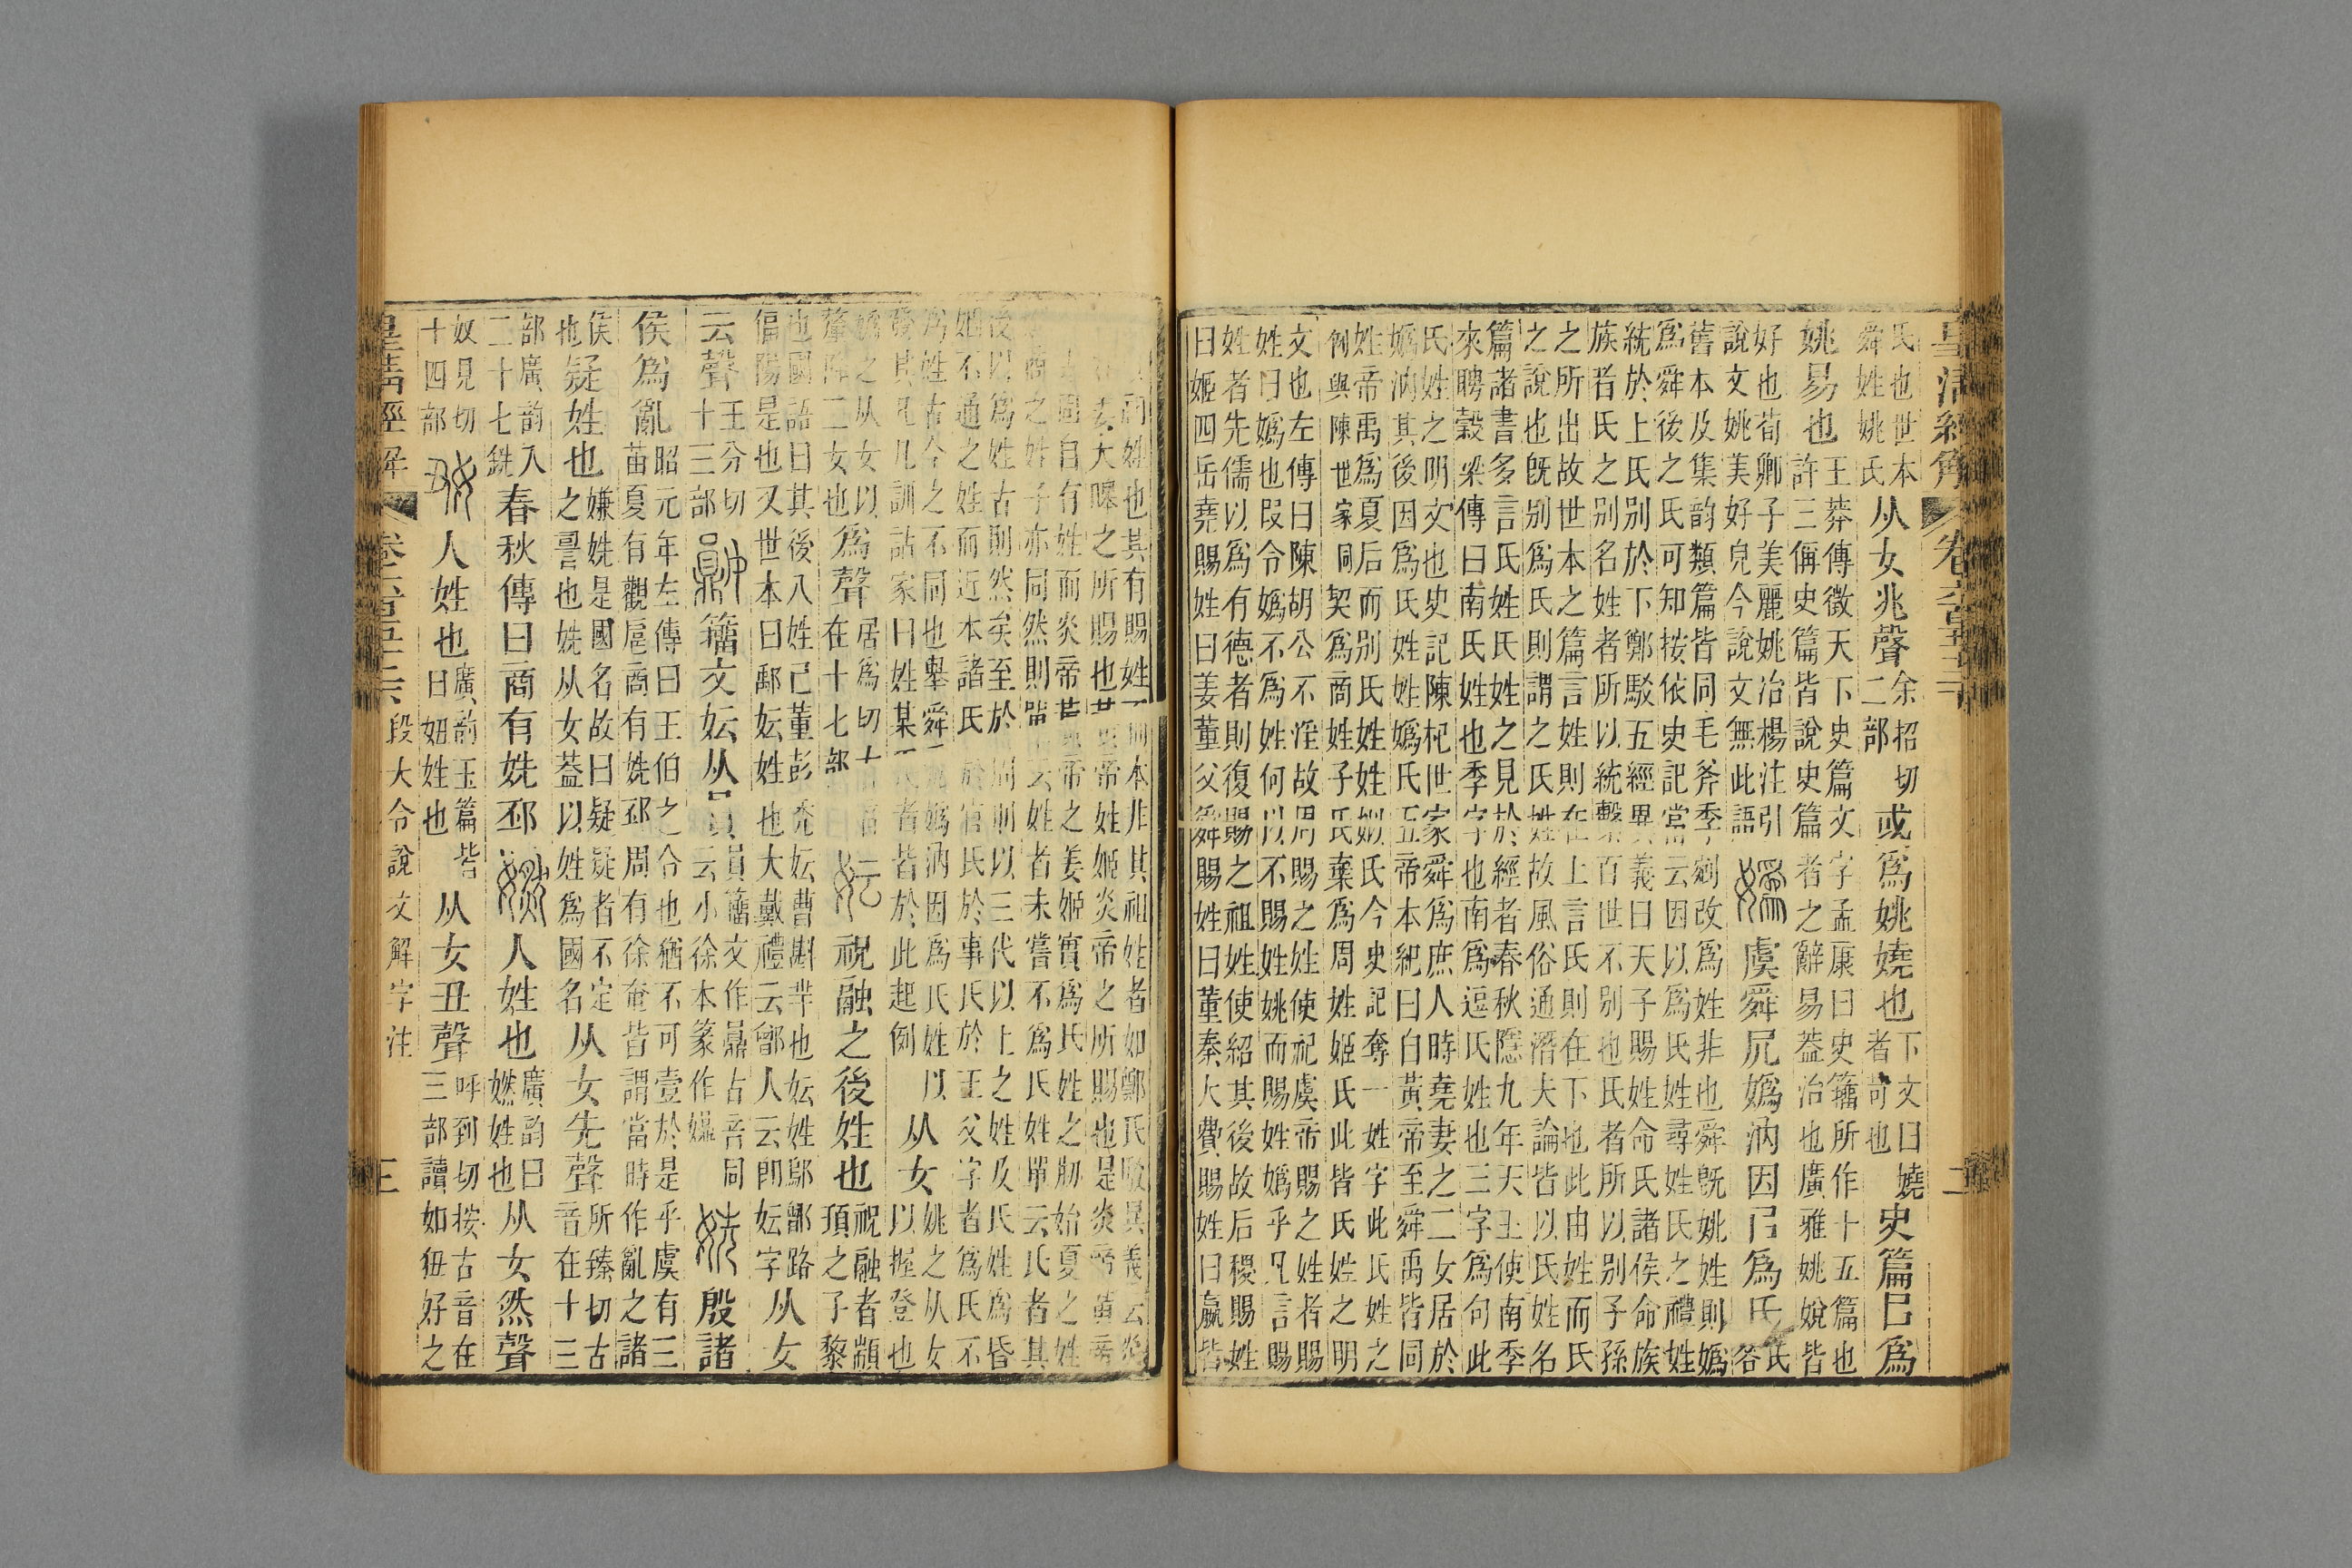 皇清經解 卷六百五十二 二
氏也世本
舜姓姚氏
从女兆聲
余招切
二部
或爲姚嬈也
下文曰嬈
者苛也
史篇㠯爲
姚易也
王莽傳徵天下史篇文字孟康曰史籒所作十五篇也
許三偁史篇皆說史篇者之辭易蓋治也廣雅姚娧皆
好也荀卿子美麗姚冶楊注引
說文姚美好皃今說文無此語
媯
虞舜凥媯汭因㠯爲氏
氏
各
舊本及集韵類篇皆同毛斧季剜改爲姓非也舜既姚姓則媯
爲舜後之氏可知按依史記當云因以爲氏姓尋姓氏之禮姓
統於上氏別於下鄭駁五經異義曰天子賜姓命氏諸侯命族
族者氏之別名姓者所以統繫百世不別也氏者所以別子孫
之所出故世本之篇言姓則在上言氏則在下也此由姓而氏
之說也旣別爲氏則謂之氏姓故風俗通潛夫論皆以氏姓名
篇諸書多言氏姓氏姓之見於經者春秋隱九年天王使南季
來聘穀梁傳曰南氏姓也季字也南爲逗氏姓也三字爲句此
氏姓之明文也史記陳杞世家舜爲庶人時堯妻之二女居於
媯汭其後因爲氏姓姓媯氏五帝本紀曰自黃帝至舜禹皆同
姓帝禹爲夏后而別氏姓姒氏今史記奪一姓字此氏姓之
例與陳世家同契爲商姓子氏棄爲周姓姬氏此皆氏姓之明
文也左傳曰陳胡公不淫故周賜之姓使祀虞帝賜之姓者賜
姓曰媯也叚令媯不爲姓何以不賜姓姚而賜姓媯乎凡言賜
姓者先儒以爲有德者則復賜之祖姓使紹其後故后稷賜姓
曰姬四岳堯賜姓曰姜董父舜賜姓曰董秦大費賜姓曰嬴皆
祖姓也其有賜姓本非其祖姓者如鄭氏駁異義云炎
姜大皞之所賜也黃帝姓姬炎帝之所賜也是炎帝黃帝
固自有姓而炎帝黃帝之姜姬實爲氏姓之剏始夏之姓
商之姓子亦同然則單云姓者未嘗不爲氏姓單云氏者其
後以爲姓古則然矣至於周則以三代以上之姓及氏姓爲昏
姻不通之姓而近本諸氏於官氏於事氏於王父字者爲氏不
爲姓古今之不同也舉舜居媯汭因爲氏姓以
發其凡凡訓詁家曰姓某氏者皆於此起例
从女
姚之从女
以握登也
媯之从女以
釐降二女也
爲聲
居爲切古
在十七部
妘
祝融之後姓也
祝融者顓
頊之子黎
也國語曰其後八姓己董彭禿妘曹斟芈也妘姓鄔鄶路
偪陽是也又世本曰鄅妘姓也大戴禮云鄶人云卽妘字
从女
云聲
王分切
十三部
籒文妘从員
員籒文作鼎古音同
云小徐本篆作
姺
殷諸
侯爲亂
昭元年左傳曰王伯之令也猶不可壹於是乎虞有三
苗夏有觀扈商有姺邳周有徐奄皆謂當時作亂之諸
侯
也
疑姓也
嫌姺是國名故曰疑疑者不定
之䛐也姺从女葢以姓爲國名
从女先聲
所臻切古
音在十三
部廣韵入
二十七銑
春秋傳曰商有姺邳
嬿
人姓也
廣韵曰
嬿姓也
从女然聲
奴見切
十四部
㚼
人姓也
廣韵玉篇皆
曰㚼姓也
从女丑聲
呼到切按古音在
三部讀如狃好之
皇清經解 卷六百五十二 段大令說文解字注 三